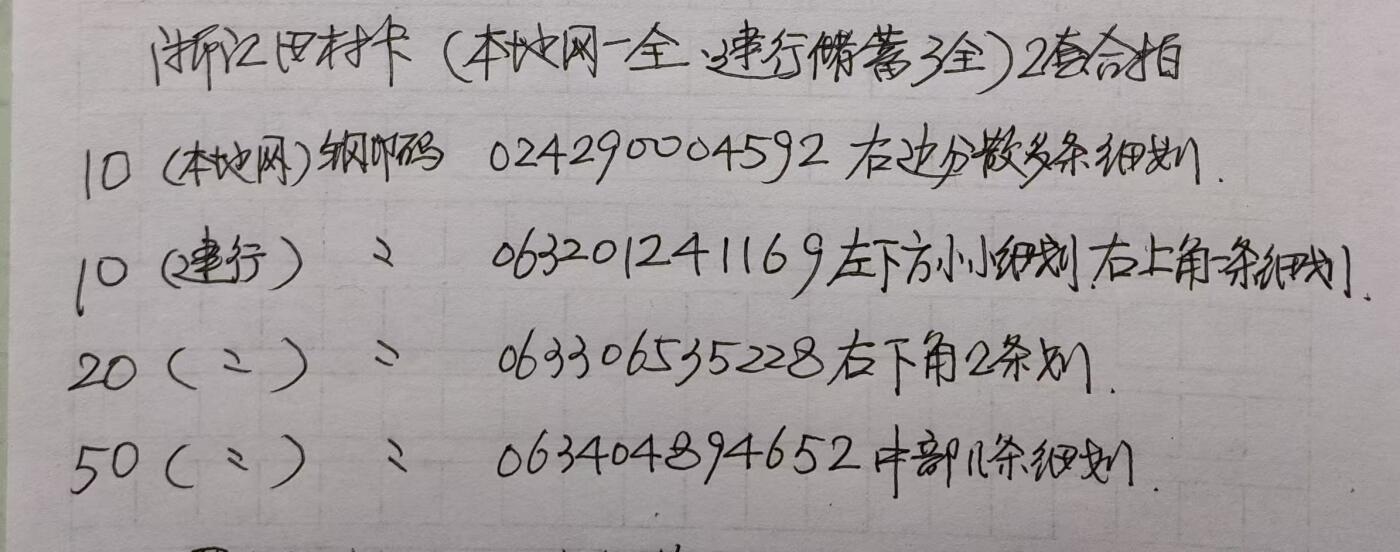 浙江田村卡(本地网一全、建行储蓄3全)2套合拍
10(本地网)钢印码 024290004592右边分散多条细划.
10(建行) 〃 063201241169左下方小小细划.右上角一条细划.
20(〃) 〃 063306535228右下角2条划.
50(〃) 〃 063404894652中部几条细划.